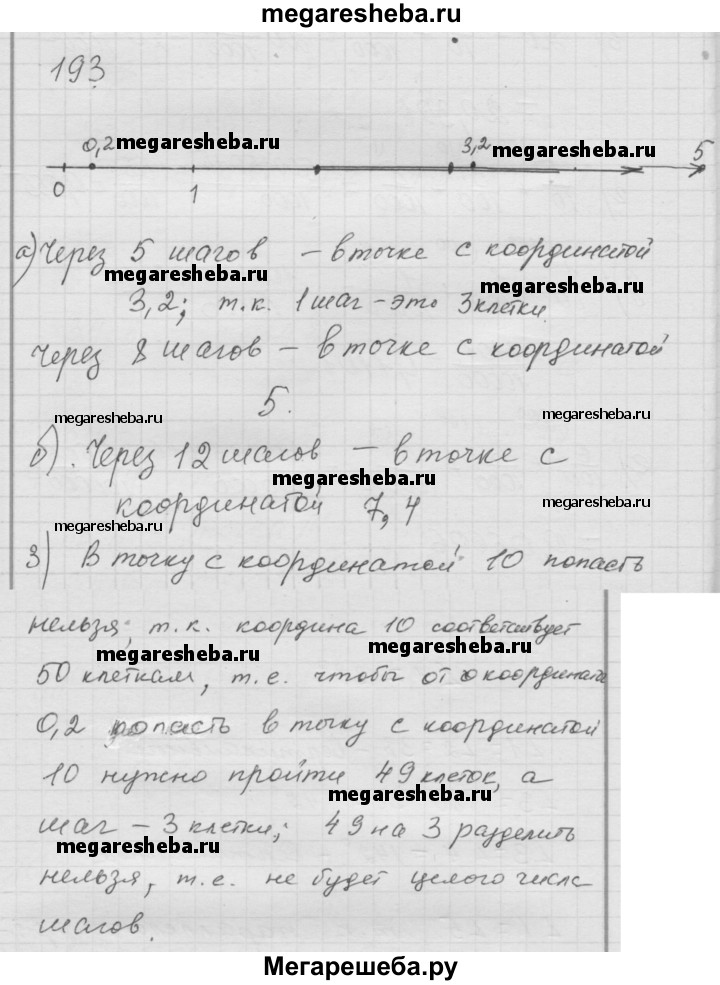 megaresheba.ru
193
0,2 megaresheba.ru 3,2 megaresheba.ru 5
0 1
а) Через 5 шагов – в точке с координатой
megaresheba.ru megaresheba.ru
3,2; т.к. 1 шаг – это 3 клетки.
Через 8 шагов – в точке с координатой
5.
megaresheba.ru megaresheba.ru
б). Через 12 шагов – в точке с
megaresheba.ru
координатой 7,4
megaresheba.ru megaresheba.ru
3) В точку с координатой 10 попасть
нельзя; т.к. координа 10 соответствует
megaresheba.ru megaresheba.ru
50 клеткам, т.е. чтобы от координата
0,2 попасть в точку с координатой
10 нужно пройти 49 клеток, а
megaresheba.ru
шаг – 3 клетки; 49 на 3 разделить
megaresheba.ru
нельзя, т.е. не будет целого числа
шагов.
Мегарешеба.ру